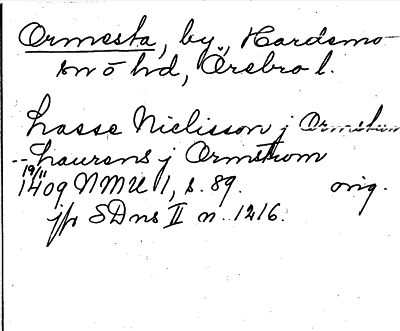 Ormesta, by, Hardemo
sn ō hd, Örebro l.
Lasse Niclisson j
-- Laurens j Ormstrom
19/11
1409 NMU 1, s. 89. orig.
jfr SDns II n. 1216.